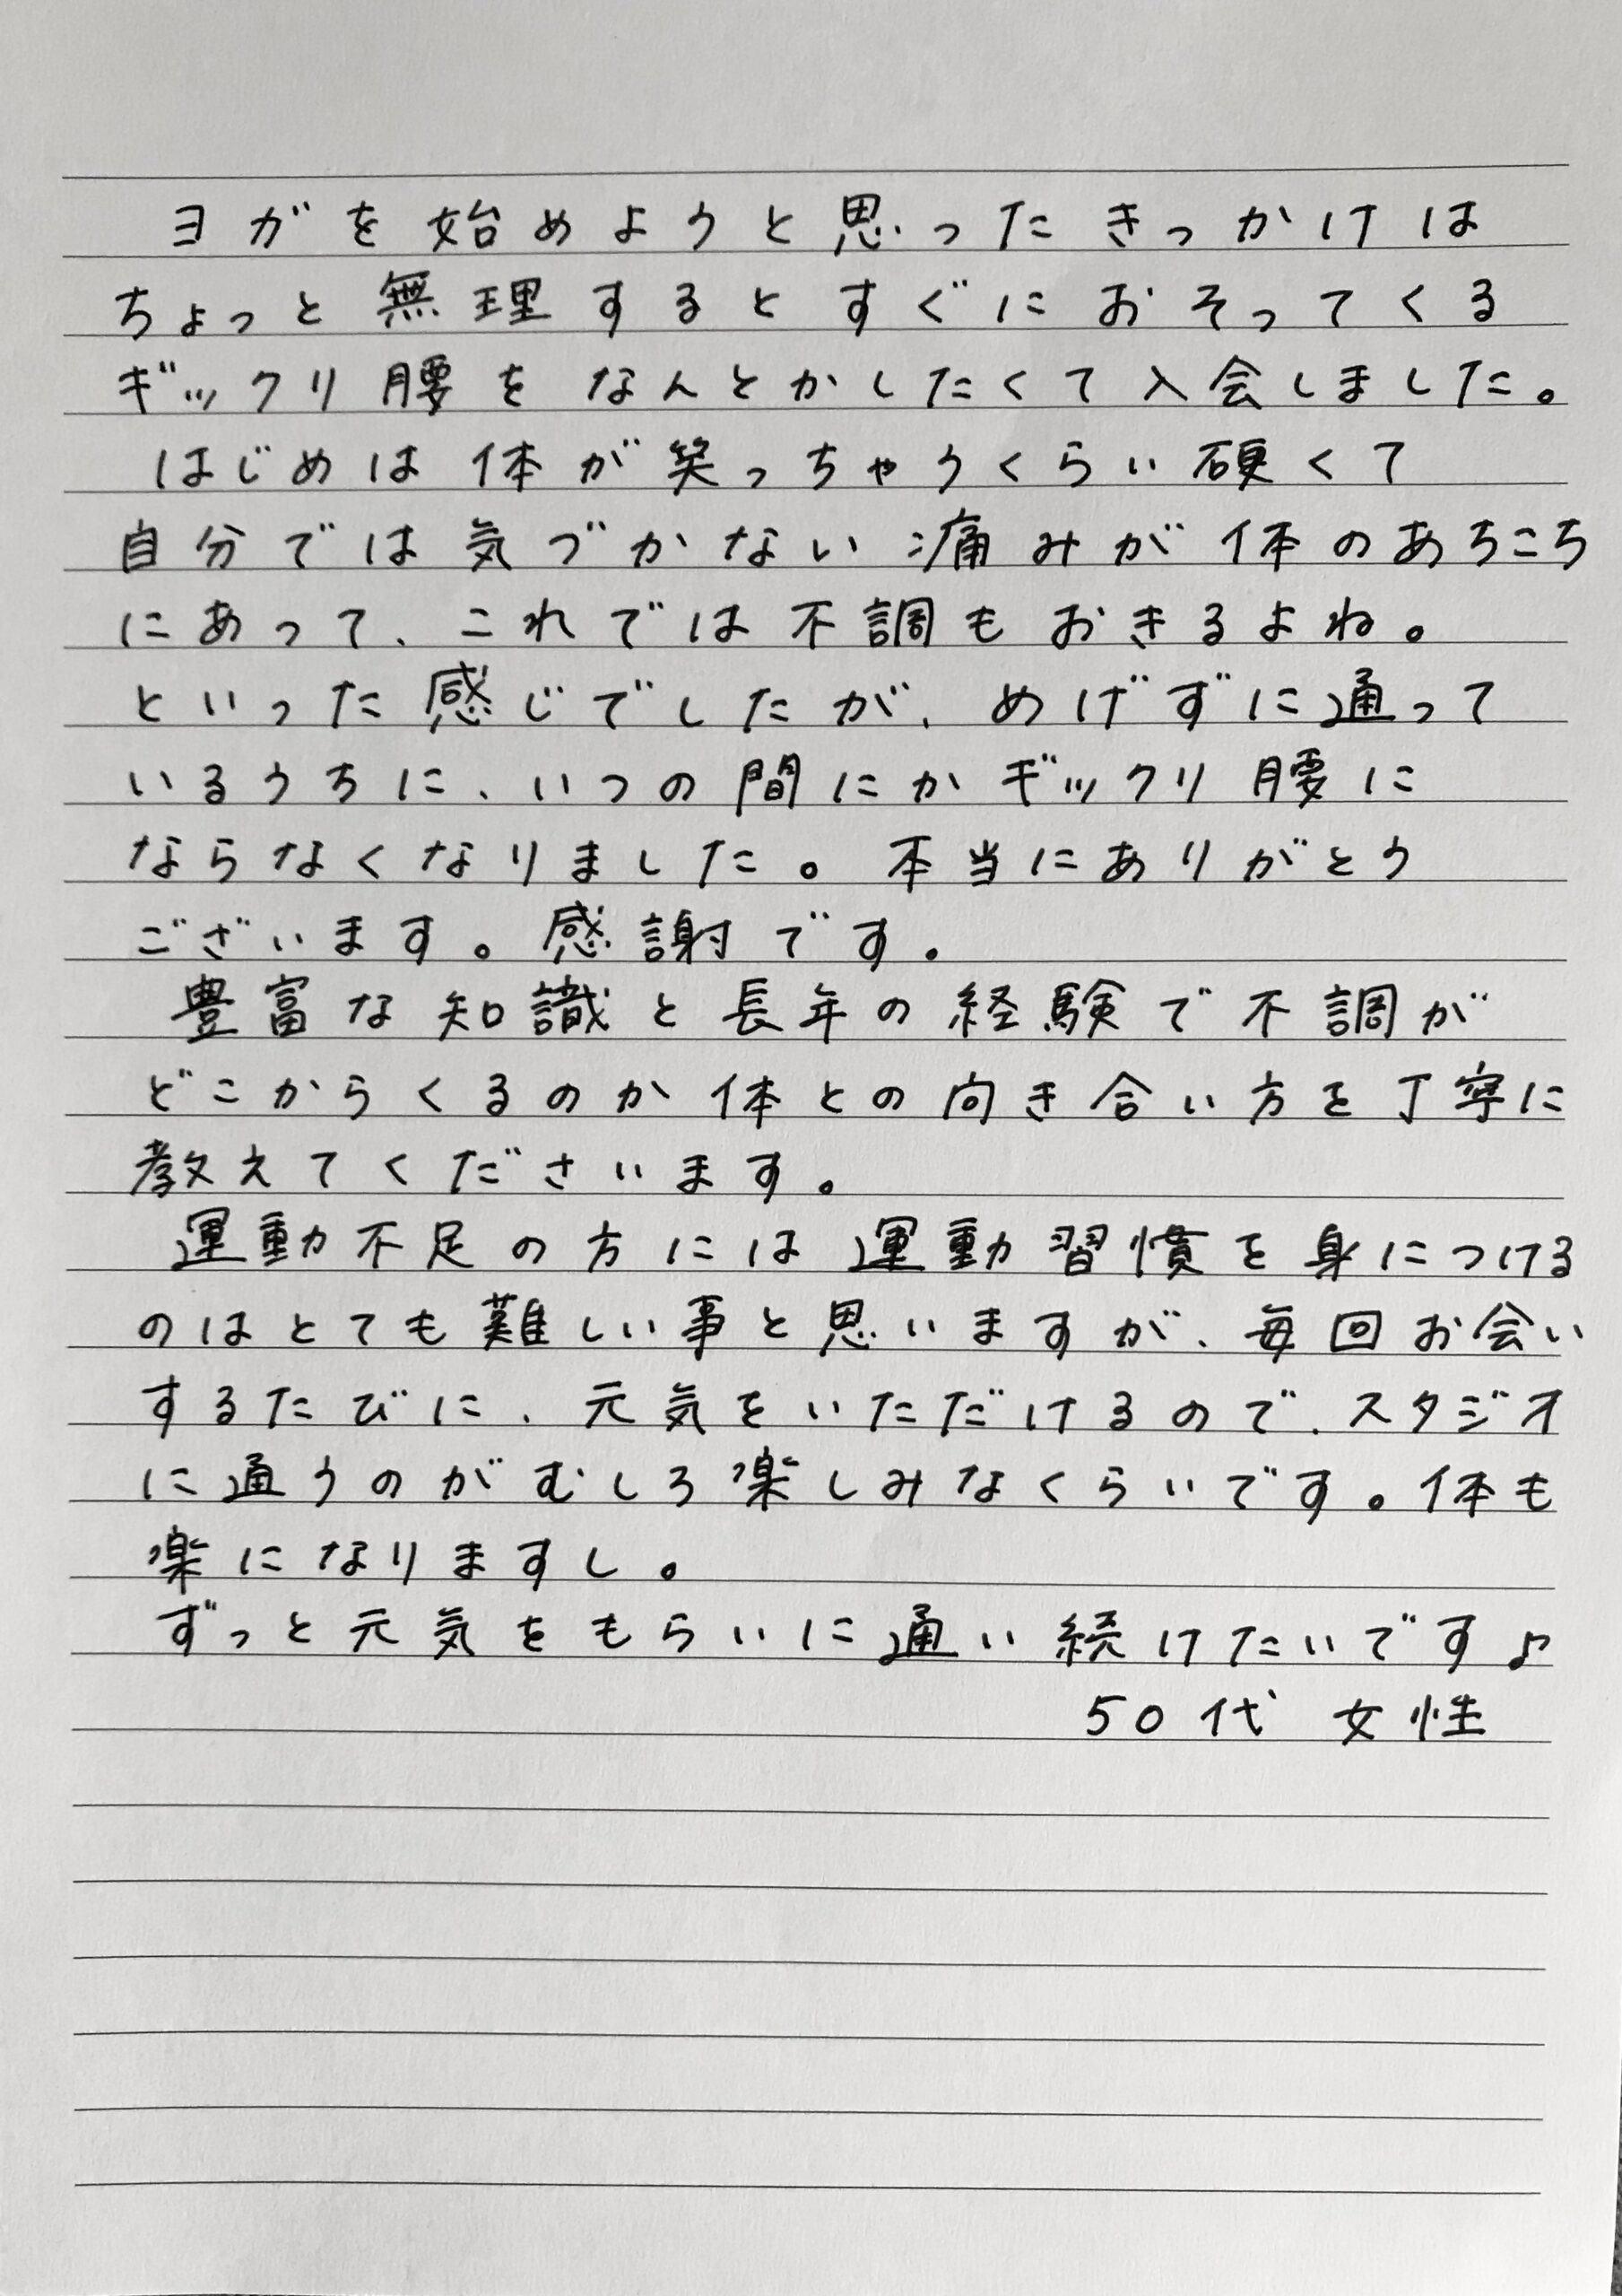 ヨガを始めようと思ったきっかけは
ちょっと無理するとすぐにおそってくる
ギックリ腰をなんとかしたくて入会しました。
はじめは体が笑っちゃうくらい硬くて
自分では気づかない痛みが体のあちこち
にあって、これでは不調もおきるよね。
といった感じでしたが、めげずに通って
いるうちに、いつの間にかギックリ腰に
ならなくなりました。本当にありがとう
ございます。感謝です。
豊富な知識と長年の経験で不調が
どこからくるのか体との向き合い方を丁寧に
教えてくださいます。
運動不足の方には運動習慣を身につける
のはとても難しい事と思いますが、毎回お会い
するたびに、元気をいただけるので、スタジオ
に通うのがむしろ楽しみなくらいです。体も
楽になりますし。
ずっと元気をもらいに通い続けたいです♪
50代 女性